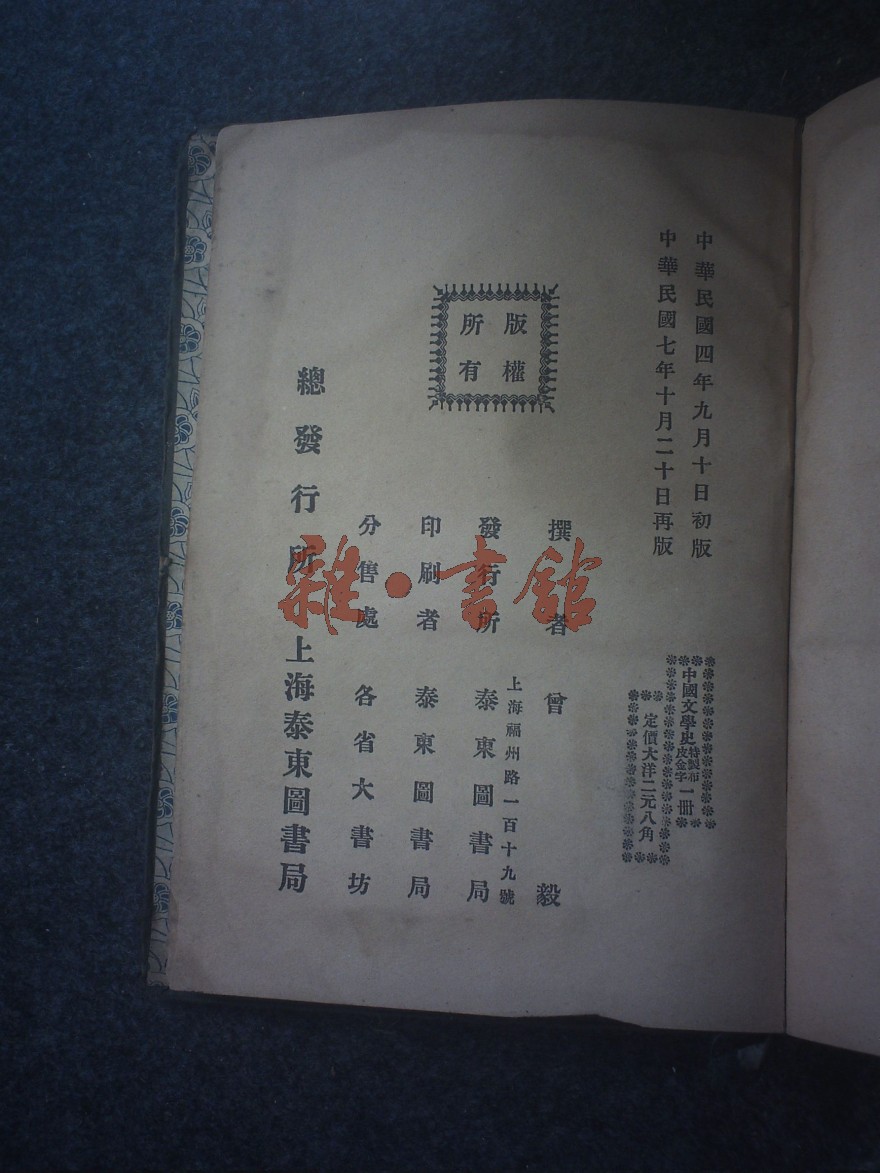 中華民國四年九月十日初版
中華民國七年十月二十日再版
中國文學史特製布皮金字一冊
定價大洋二元八角
版權所有
撰者 曾毅
上海福州路一百十九號
發行所 泰東圖書局
印刷者 泰東圖書局
分售處 各省大書坊
總發行所 上海泰東圖書局
雜·書館